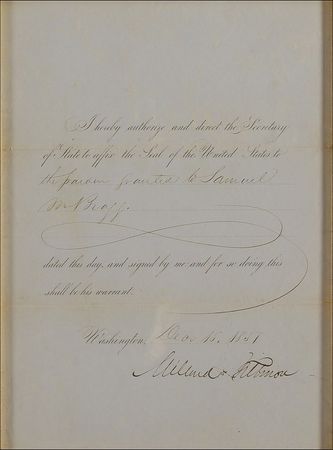 I hereby authorize and direct the Secretary
of State to affix the Seal of the United States to
the pardon granted to Samuel
dated this day, and signed by me and for so doing this
shall be his warrant.
Washington, 16, 1851
Millard Fillmore